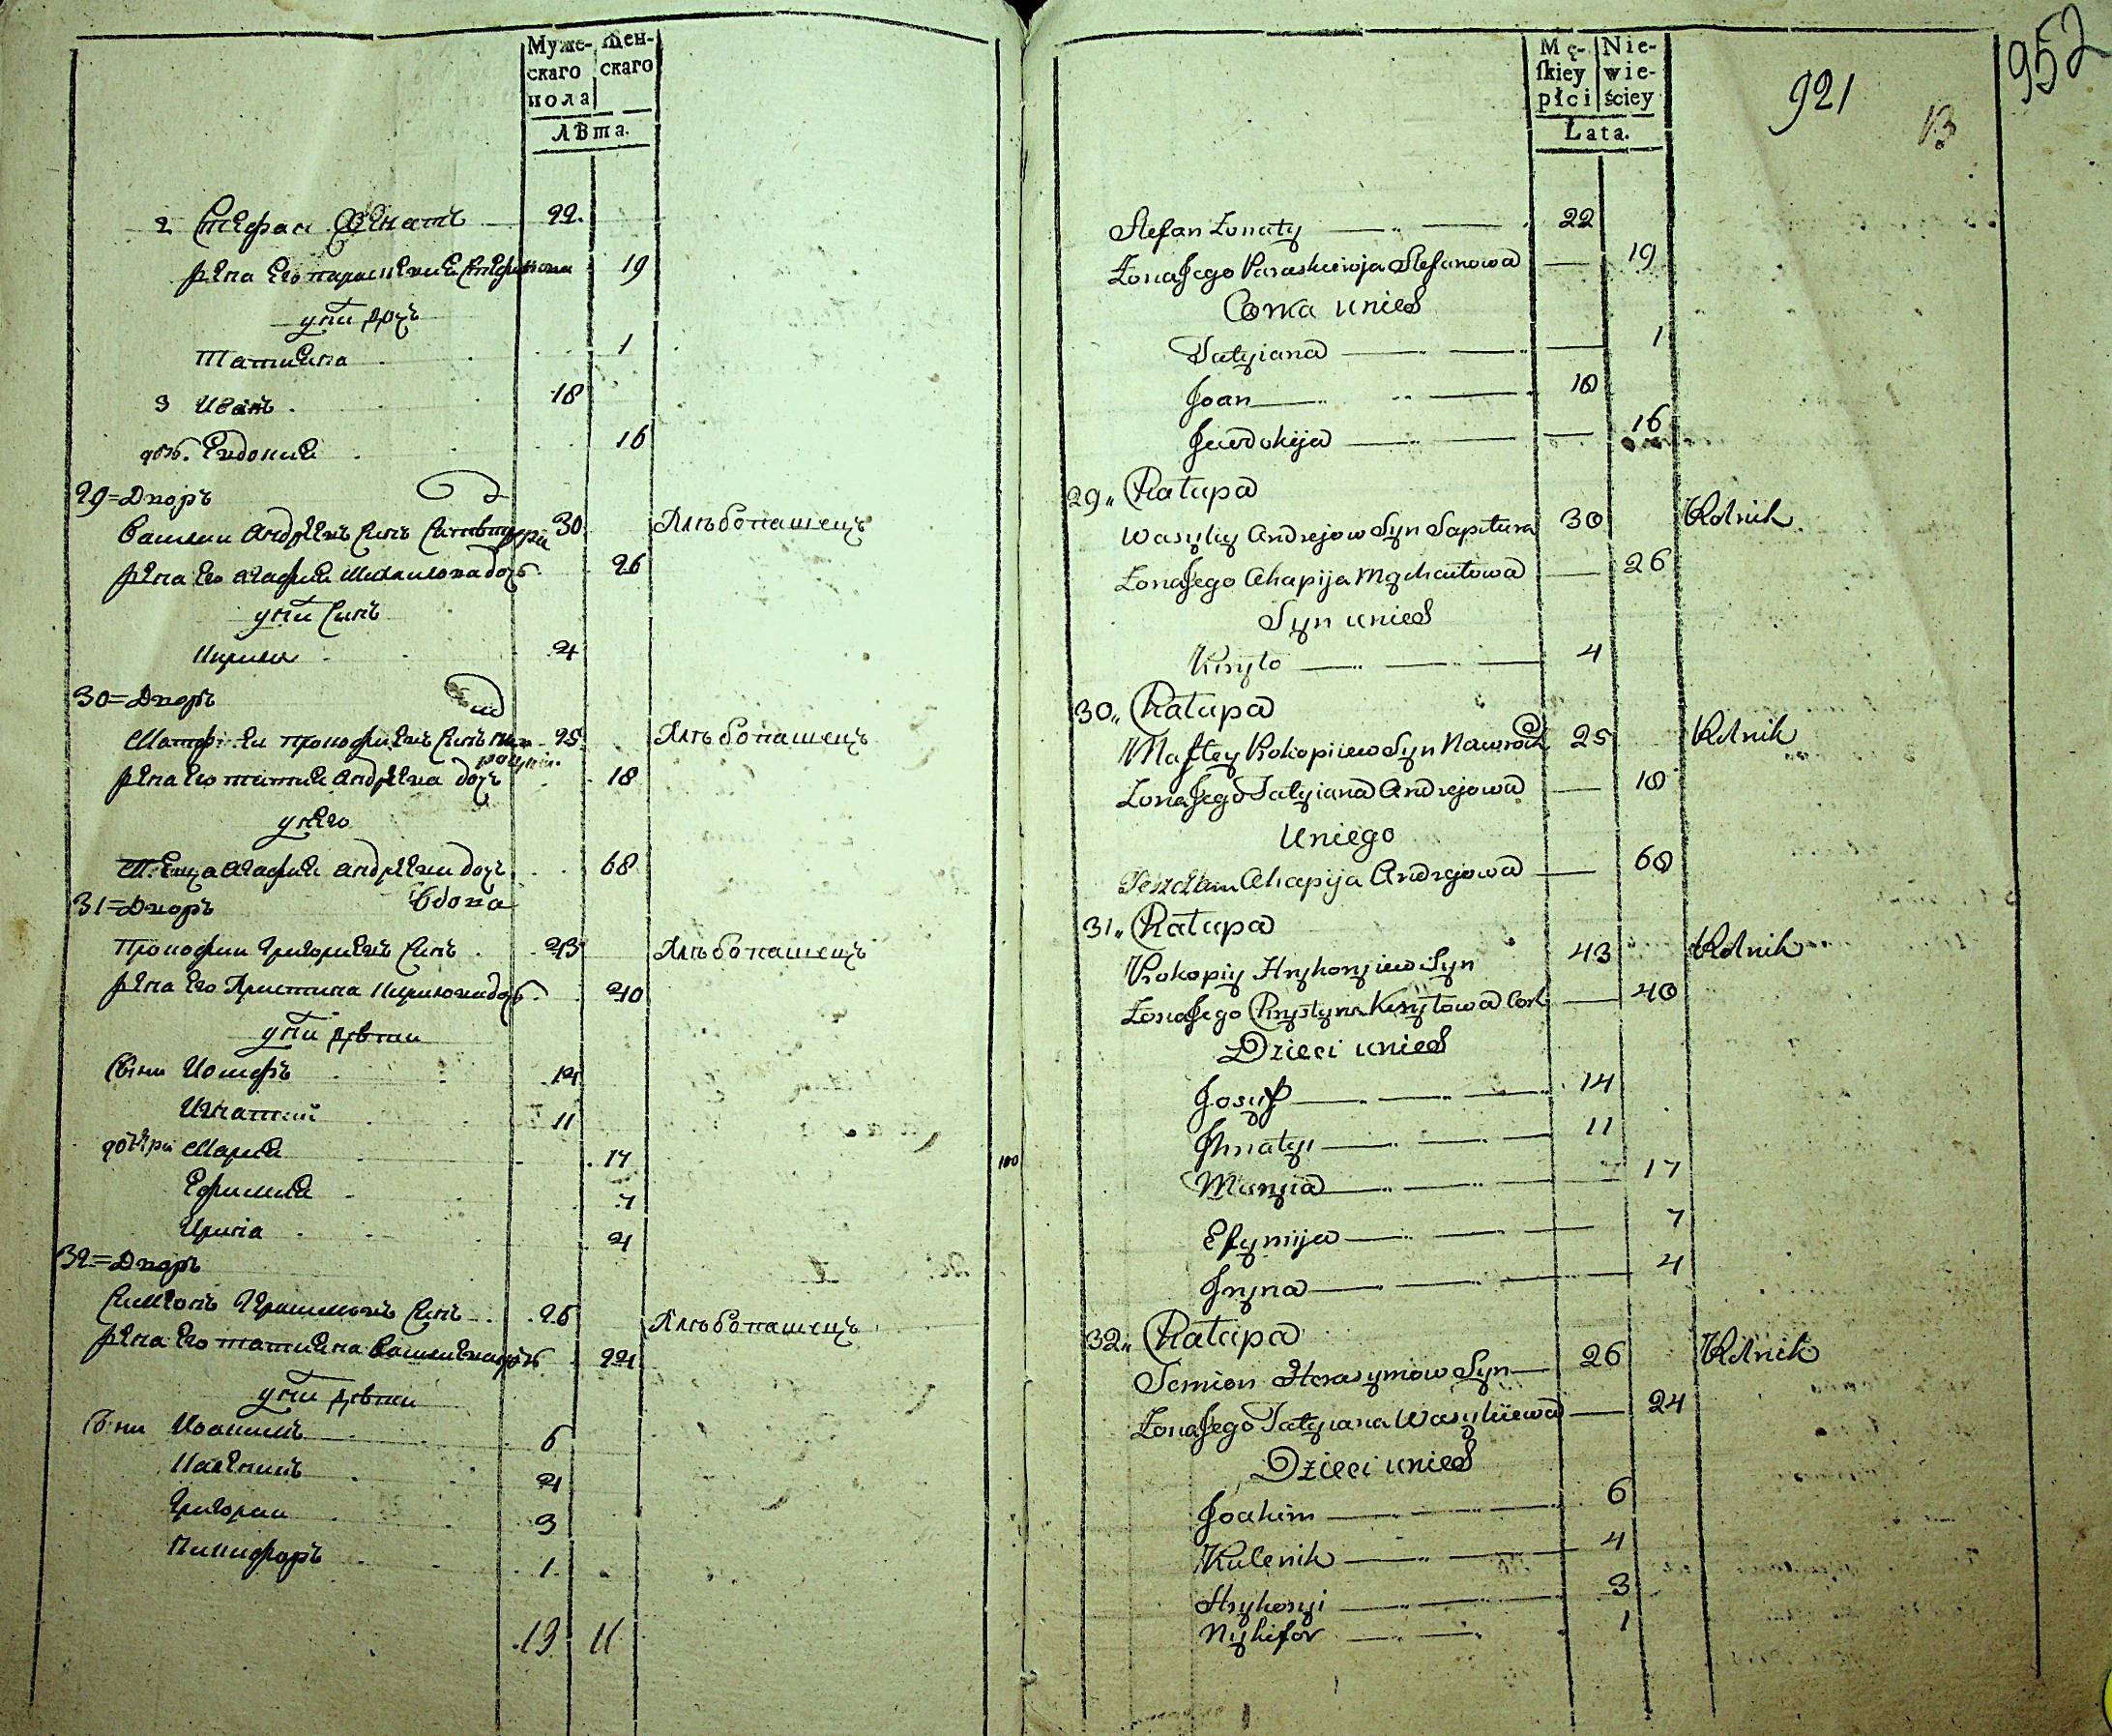 Муже- Жен-
скаго скаго
пола
лѣта.
2 Стефан Женатъ 22.
Жена Его параскевия Стефанова 19
у ни дочъ
Татияна 1
3 Иванъ 18
доч. Евдокия 16
29=Дворъ
Василий Андреевъ Синъ 30. Хлѣбопашецъ
Жена Его агафия Михаиловна доч. 26
у ни Синъ
Кирило 4
30=Дворъ
Матфей прокофиевъ Синъ 25 Хлѣбопашецъ
Жена Его татияна андреева доч 18
у него
Теща агафия андреева доч. 68
31=Дворъ вдова
Прокофий Григориевъ Синъ 43 Хлѣбопашецъ
Жена Его Христина Кирилова доч. 40
у ни дѣти
Сыни Иосифъ 14
Игнатий 11
дочери Мария 17
Ефимия 7
Ирина 4
32=Дворъ
Симеонъ Герасимовъ Синъ 26 Хлѣбопашецъ
Жена Его татияна василиева доч 24
у ни дѣти
Сыни Иоакимъ 6
Каленикъ 4
Григорий 3
Никифоръ 1.
13 11
100
952
921
13
Mę- Nie-
ſkiey wie-
płci ściey
Lata.
Stefan Zonaty 22
Zona Jego Paraskewija Stefanowa 19
Corka unich
Tatyiana 1
Joan 18
Jewdokija 16
29„ Chałupa
Wasyliy Andrejow Syn Sapitura 30 Rolnik.
Zona Jego Ahapija Mychaiłowa 26
Syn unich
Kiryło 4
30„ Chałupa
Maftey Prokopiiew Syn Nawrocki 25 Rolnik
Zona Jego Tatyiana Andrejowa 18
Uniego
Teszcza Ahapija Andrejowa 68
31„ Chałupa
Prokopiy Hryhoryiew Syn 43 Rolnik
Zona Jego Chrystyna Kiryłowa Cork 40
Dzieci unich
Josyf 14
Jhnatyi 11
Maryia 17
Efymija 7
Jryna 4
32„ Chałupa
Semion Herasymow Syn 26 Rolnik
Zona Jego Tatyiana Wasyliiewa 24
Dzieci unich
Joakim 6
Kalenik 4
Hryhoryi 3
Nykifor 1